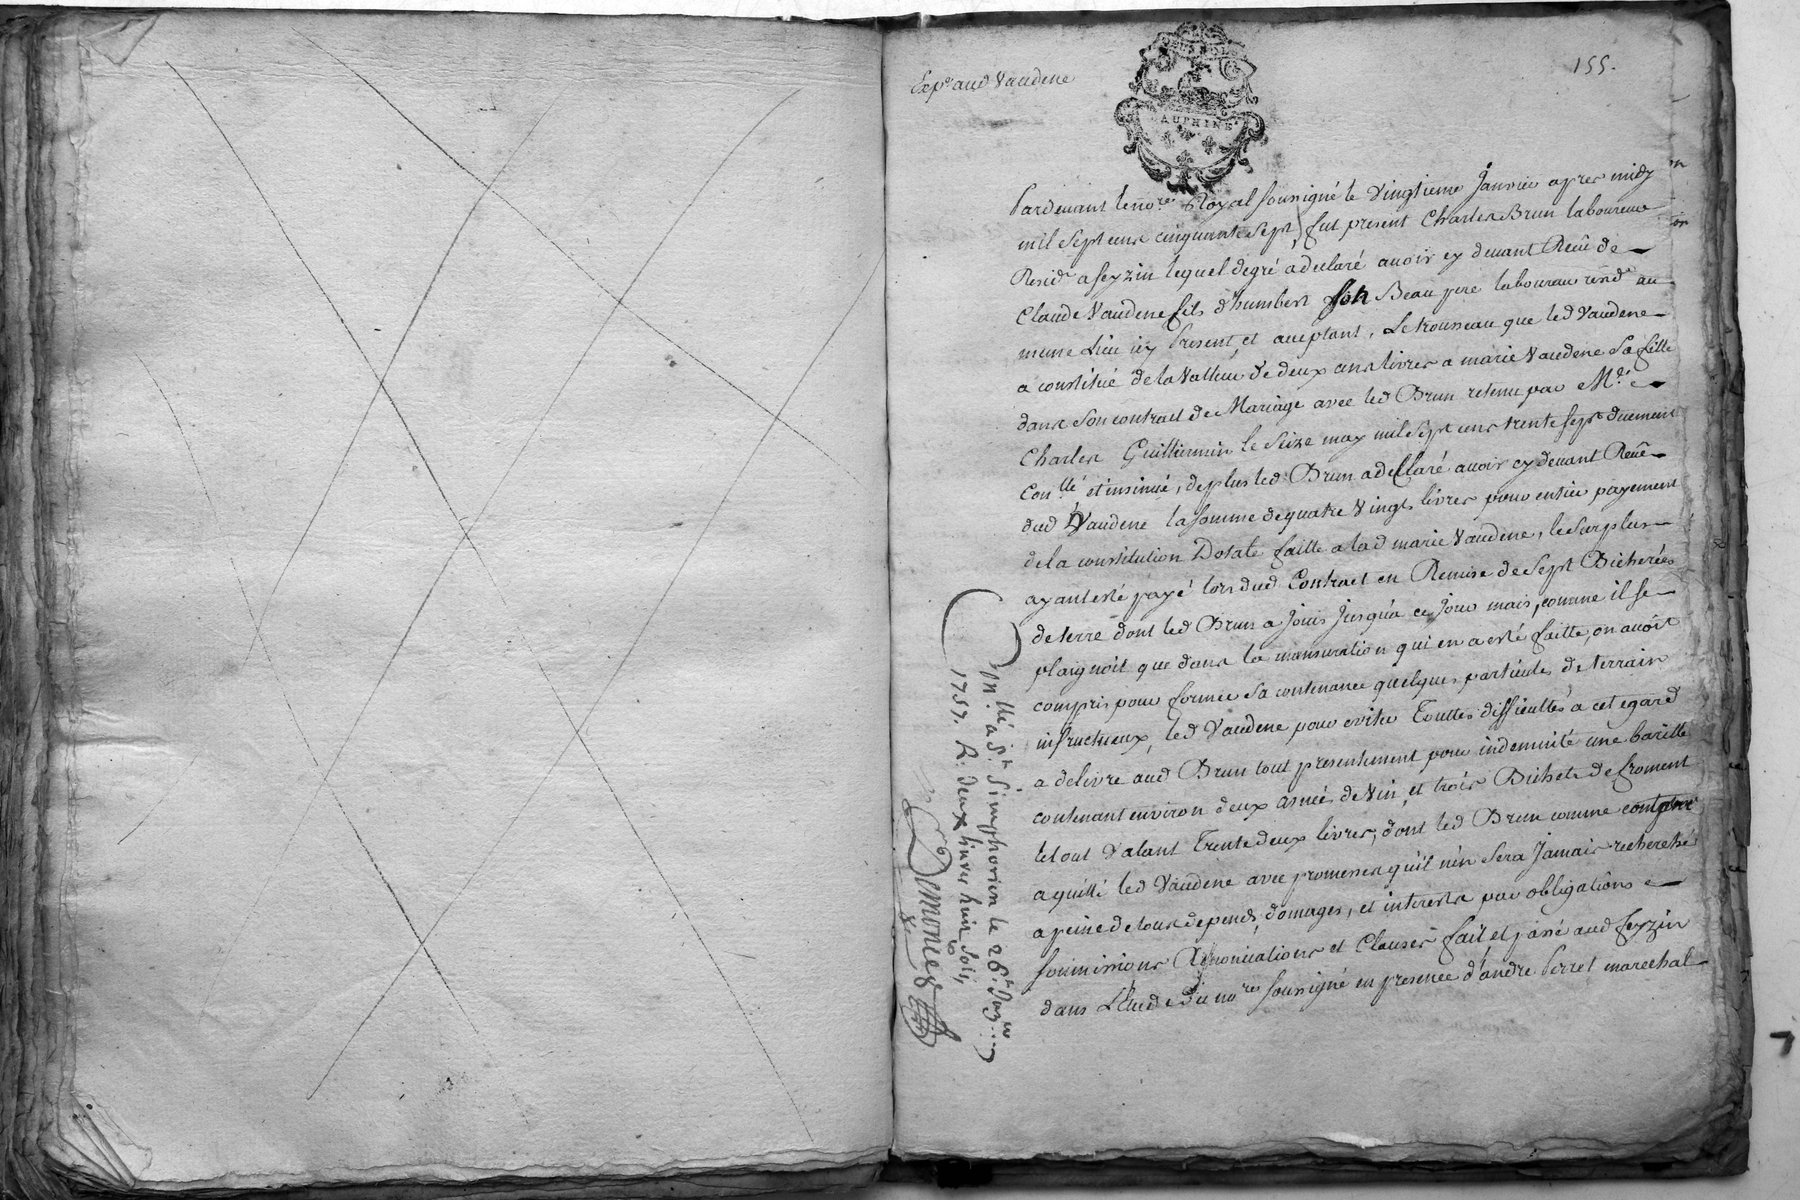 Exp.é aud Vaudene
155.
DEUX SOLS
DAUPHINE
Pardevant le no.re Royal soussigné le vingtieme Janvier apres midy
mil sept cens cinquante sept, fut present Charles Brun laboureur
Resid.t a feyzin lequel de gré a declaré avoir cy devant Reçu de
Claude Vaudene fils d'humbert son Beau pere laboureur resid.t au
meme Lieu icy Present, et acceptant, Le trousseau que led Vaudene
a constitué de la valleur de deux cens livres a marie Vaudene sa fille
dans son contract de Mariage avec led Brun retenu par M.tre
Charles Guillermin le seize may mil sept cens trente sept duement
Con.llé et insinué, de plus led Brun a declaré avoir cy devant Reçû
dud Vaudene la somme de quatre vingts livres pour entier payement
de la constitution Dotale faitte a lad marie Vaudene, le surplus
ayant esté payé lors dud Contract en Remise de sept Bicherées
de terre dont led Brun a Joui Jusqu'a ce Jour mais, comme il se
plaignoit que dans la mensuration qui en a esté faitte, on avoit
compris pour former sa contenance quelques particules de terrain
infructueux, led Vaudene pour eviter Touttes difficultés a cet egard
a delivre aud Brun tout presentement pour indemnité une barille
contenant environ deux asnées de vin, et trois Bichets de froment
le tout valant Trente deux livres, dont led Brun comme content
a quitté led Vaudene avec promesses qu'il n'en sera Jamais recherché
a peine de tous depends, domages, et interests par obligations
soumissions Renonciations et Clauses fait et passé aud feyzin
dans L'Etude du no.re soussigné en presence d'andre Perret marechal
Con.llé a S.t Simphorien le 26.e Janv.er
1757. R. deux livres huit sols
Demones